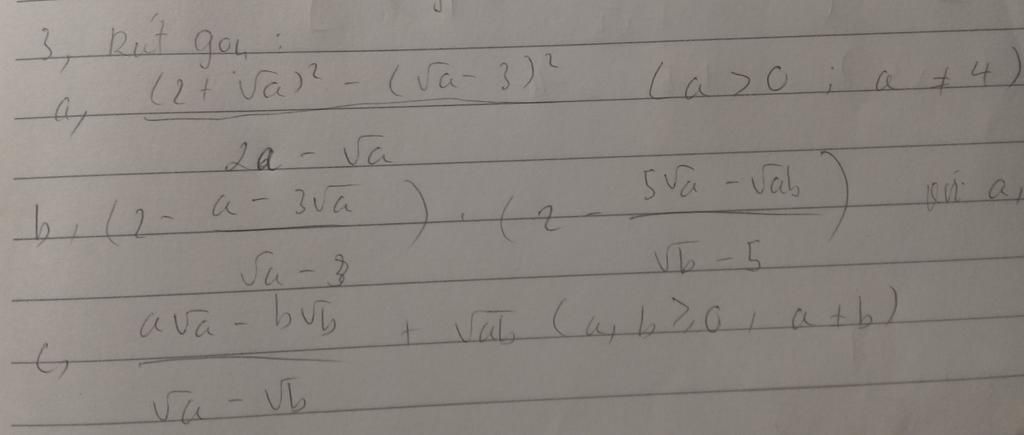 3, Rút gọn :
a, \frac{(2 + √a)² - (√a - 3)²}{2a - √a} (a > 0 ; a ≠ 4)
b, (2 - \frac{a - 3√a}{√a - 3}) . (2 - \frac{5√a - √ab}{√b - 5}) với a,
c, \frac{a√a - b√b}{√a - √b} + √ab (a, b ≥ 0, a ≠ b)